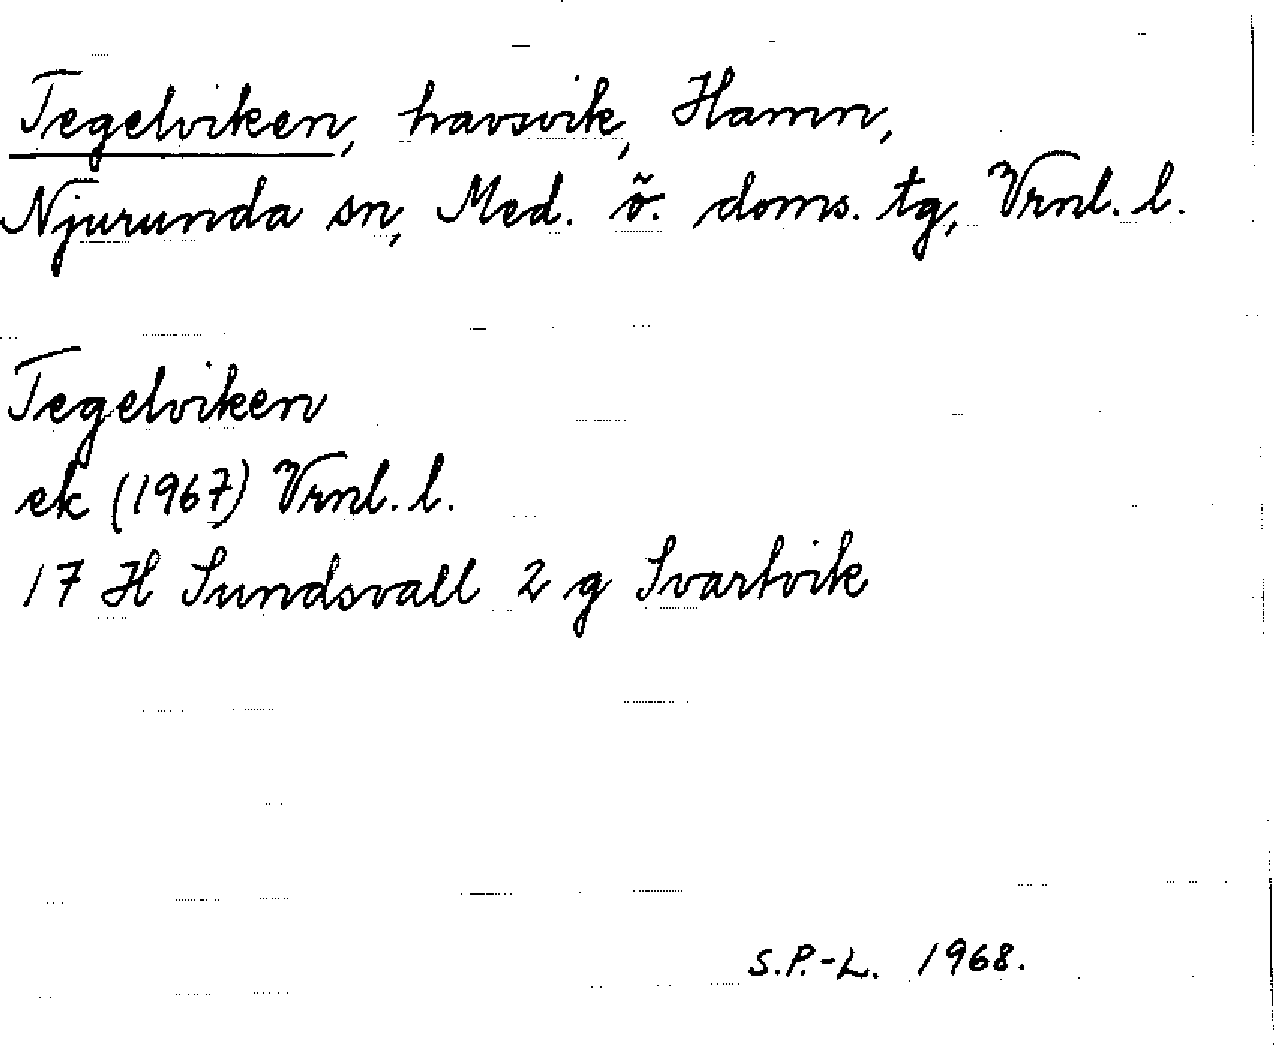 Tegelviken, havsvik, Hamn,
Njurunda sn, Med. ö. doms. tg, Vrnl. l.
Tegelviken
ek (1967) Vrnl. l.
17 H Sundsvall 2 g Svartvik
S.P.-L. 1968.